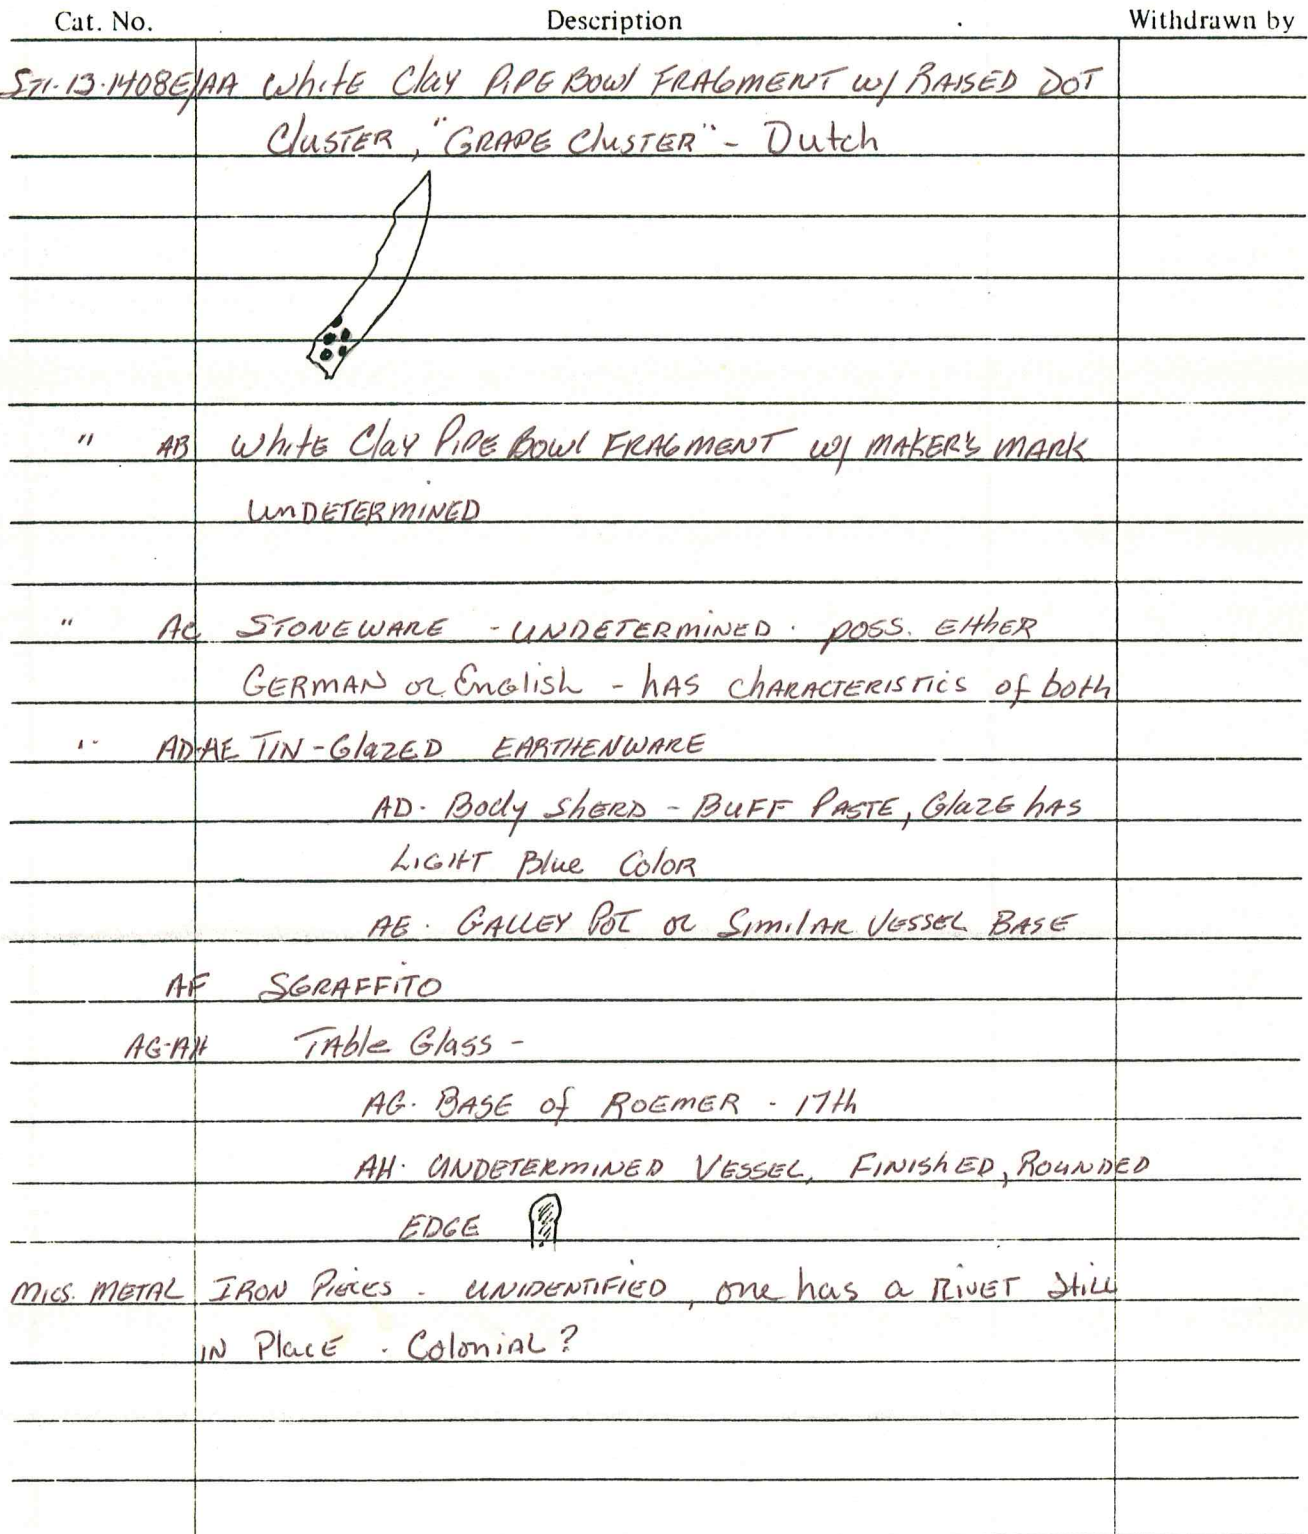 Cat. No. Description Withdrawn by
S71.13.1408E/AA White Clay PIPE Bowl FRAGMENT w/ RAISED DOT
CluSTER, "GRAPE CluSTER" - Dutch
" AB White Clay PIPE Bowl FRAGMENT w/ MAKER'S MARK
UnDETERMINED
" AC STONEWARE - UNDETERMINED. poss. EitHER
GERMAN or English - hAS chARACTERISTICS of both
" AD-AE TIN-GlaZED EARTHENWARE
AD. Body SheRD - BUFF PASTE, Glaze hAS
LIGHT Blue Color
AE. GALLEY POT or SimilAR VESSEL BASE
AF SGRAFFITO
AG-AH TAble Glass -
AG. BASE of ROEMER - 17th
AH. UNDETERMINED VESSEL, FINISHED, ROUNDED
EDGE
MICS. METAL IRON PIECES - UNIDENTIFIED, one has a RIVET Still
IN PlacE. ColoniAL?